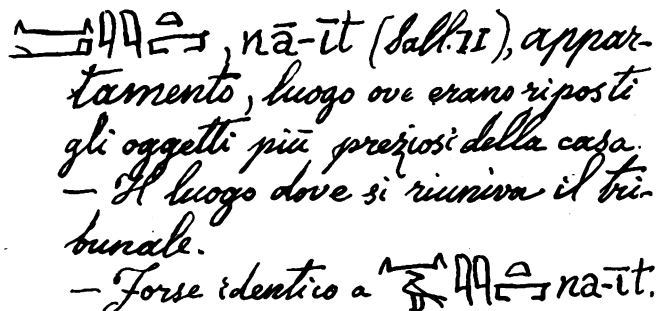 , nā-īt (Sall. II), appar-
tamento, luogo ove erano riposti
gli oggetti più preziosi della casa.
— Il luogo dove si riuniva il tri-
bunale.
— Forse identico a na-īt.